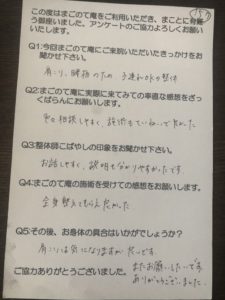 この度はまごのて庵をご利用いただき、まことに有難
う御座いました。アンケートのご協力よろしくお願い
いたします。
Q1:今回まごのて庵にご来院いただいたきっかけをお
聞かせ下さい。
肩こり、腰痛のため 子連れOKの整体
Q2:まごのて庵に実際に来てみての率直な感想をざっ
くばらんにお願いします。
相談しやすく、施術もていねいで良かった
Q3:整体師こばやしの印象をお聞かせ下さい。
お話しやすく、説明も分かりやすかったです
Q4:まごのて庵の施術を受けての感想をお願いします。
全身整えてもらえ良かった
Q5:その後、お身体の具合はいかがでしょうか?
肩こりは気になりますが 良いです
またお願いしたいです
ご協力ありがとうございました。
ありがとうございました